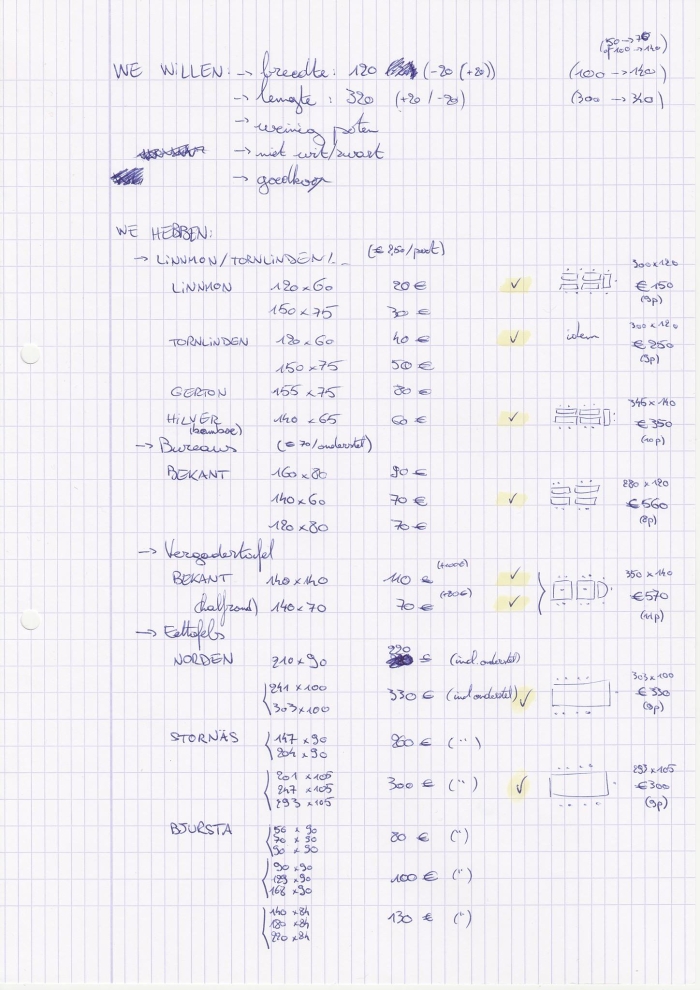 (50 → 75
of 100 → 140)
WE WILLEN: → breedte: 120 (-20 (+20)) (100 → 140)
→ lengte: 320 (+20 / -20) (300 → 340)
→ weinig poten
→ niet wit/zwart
→ goedkoop
WE HEBBEN:
→ LINNMON/TORNLINDEN/... (€ 2,50/poot)
LINNMON 120 x 60 20 € ✓ 300 x 120 € 150 (9p)
150 x 75 30 €
TORNLINDEN 120 x 60 40 € ✓ idem 300 x 120 € 250 (9p)
150 x 75 50 €
GERTON 155 x 75 80 €
HILVER (bamboe) 140 x 65 60 € ✓ 345 x 140 € 350 (10p)
→ Bureaus (€ 70/onderstel)
BEKANT 160 x 80 90 €
140 x 60 70 € ✓ 280 x 120 € 560 (8p)
120 x 80 70 €
→ Vergadertafel
BEKANT 140 x 140 110 € ✓ 350 x 140 € 570 (11p)
(halfrond) 140 x 70 70 € (+80€) ✓
→ Eettafels
NORDEN 210 x 90 220 € (incl. onderstel)
241 x 100
303 x 100 330 € (incl onderstel) ✓ 303 x 100 € 330 (9p)
STORNÄS 147 x 90
204 x 90 260 € (")
201 x 105
247 x 105
293 x 105 300 € (") ✓ 293 x 105 € 300 (9p)
BJURSTA 50 x 90
70 x 90
90 x 90 80 € (")
90 x 90
129 x 90
168 x 90 100 € (")
140 x 84
180 x 84
220 x 84 130 € (")